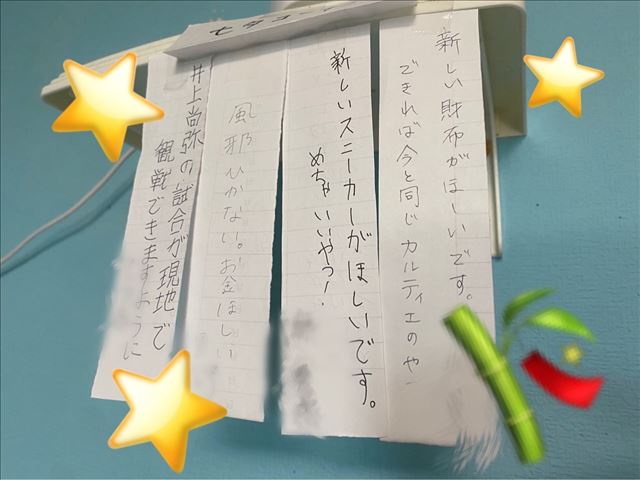 新しい財布がほしいです。
できれば今と同じカルティエのや
新しいスニーカーがほしいです。
めちゃいいやつ!
風邪ひかない。お金ほしい
井上尚弥の試合が現地で
観戦できますように